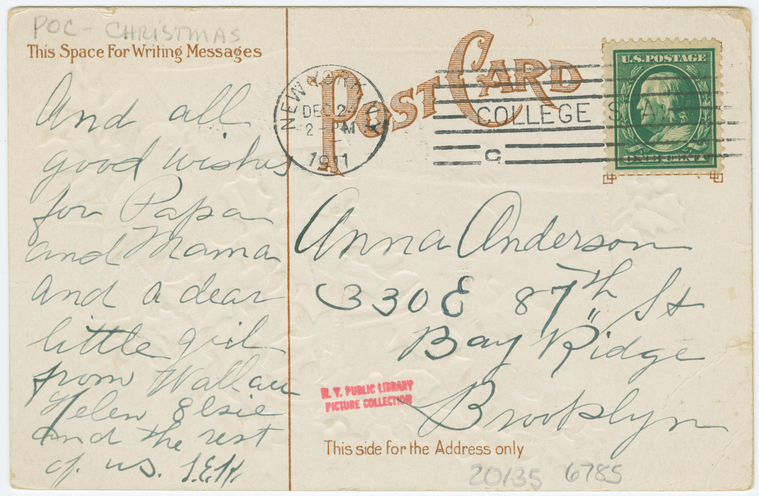 POC - CHRISTMAS
This Space For Writing Messages
POST CARD
NEW YORK
DEC 2
2-PM
1911
COLLEGE
C
U.S. POSTAGE
ONE CENT
And all
good wishes
for Papa
and Mama
and a dear
little girl
from Wallace
Helen Elsie
and the rest
of us.
Anna Anderson
330 E 87th St
Bay Ridge
Brooklyn
N. Y. PUBLIC LIBRARY
PICTURE COLLECTION
This side for the Address only
20135 6785